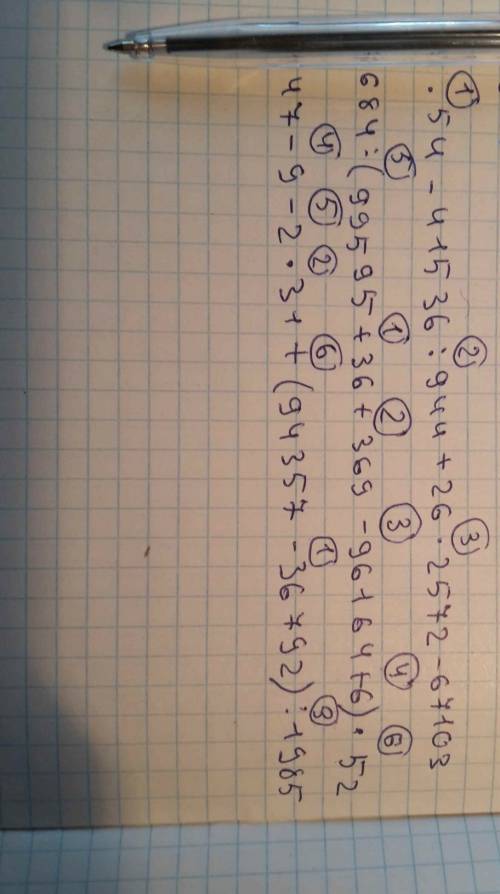 ① ② ③
·54-41536:944+26·2572-67103
⑤ ① ② ③ ④ ⑥
684:(99595+36+369-96164+6)·52
④ ⑤ ② ⑥ ① ③
47-9-2·31+(94357-36792):1985